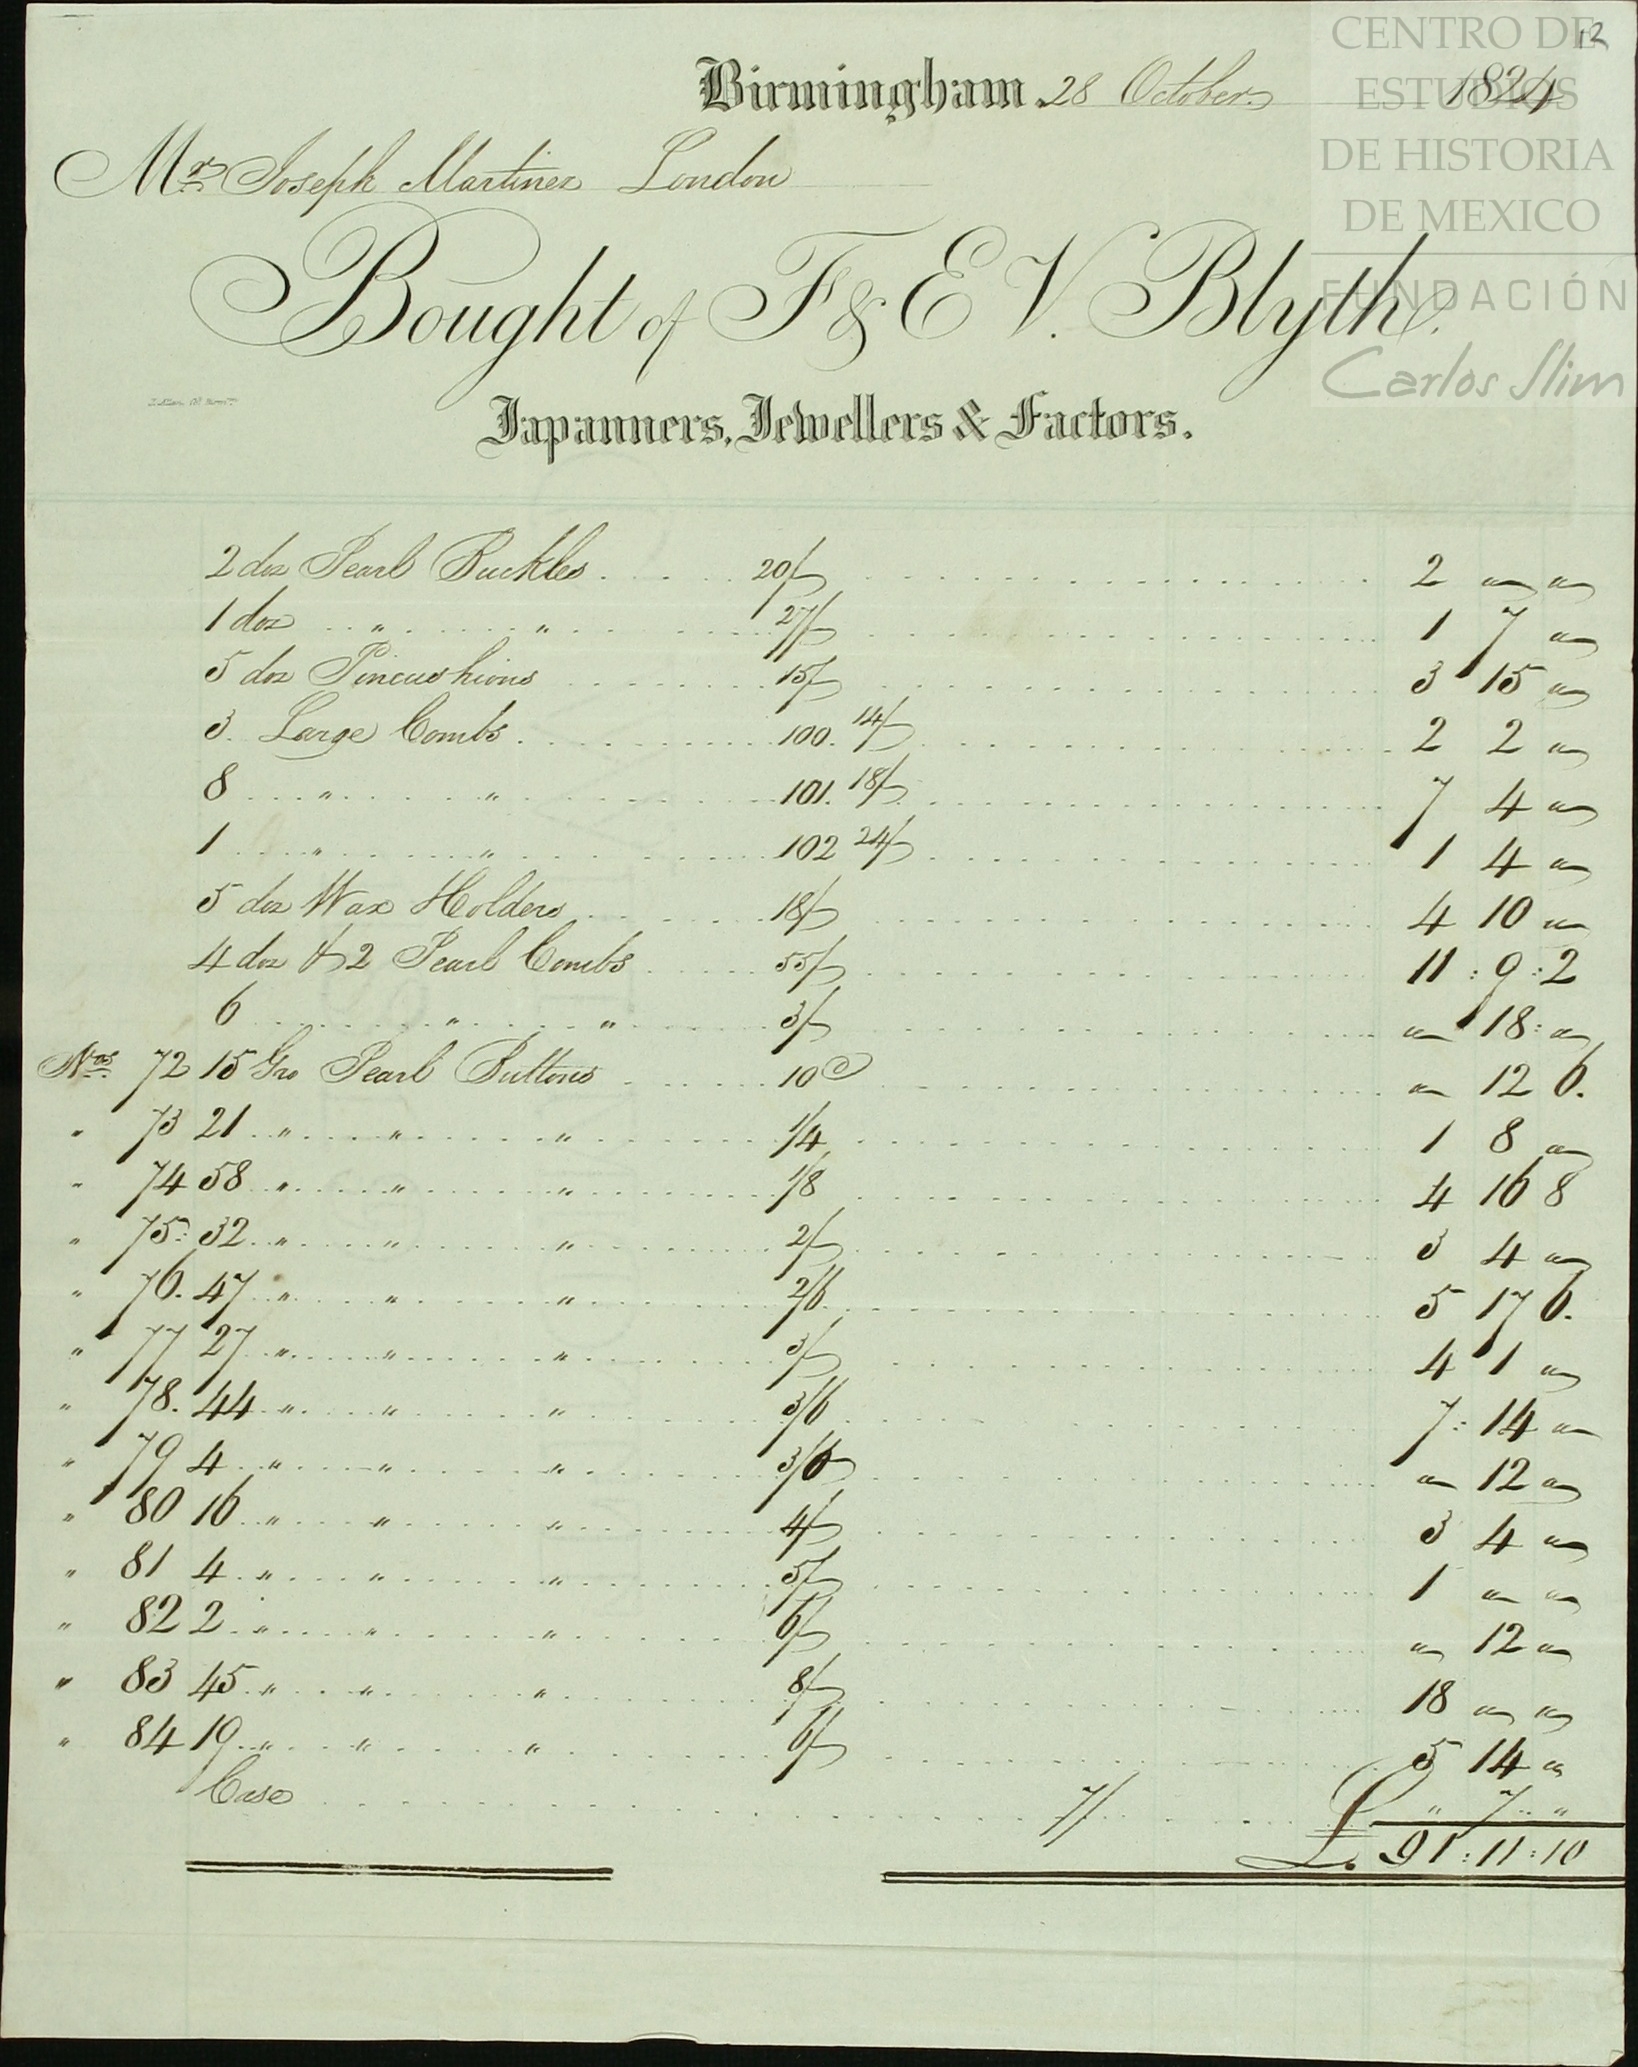 12
CENTRO DE
ESTUDIOS
DE HISTORIA
DE MEXICO
FUNDACIÓN
Carlos Slim
Birmingham. 28 October 1824
Mr. Joseph Martinez London
Bought of F & E V. Blyth.
Japanners, Jewellers & Factors.
2 doz Pearl Buckles 20/ 2 " "
1 doz " " 27/ 1 7 "
5 doz Pincushions 15/ 3 15 "
3. Large Combs 100. 14/ 2 2 "
8 " " 101. 18/ 7 4 "
1 " " 102 24/ 1 4 "
5 doz Wax Holders 18/ 4 10 "
4 doz & 2 Pearl Combs 55/ 11:9:2
6 " " 3/ " 18: "
Nos. 72 15 Gro Pearl Buttons 10d " 12 6.
" 73 21 " " " 1/4 1 8 "
" 74 58 " " " 1/8 4 16 8
" 75: 32 " " " 2/ 3 4 "
" 76. 47 " " " 2/6 5 17 6.
" 77 27 " " " 3/ 4 1 "
" 78. 44 " " " 3/6 7: 14 "
" 79 4 " " " " 12 "
" 80 16 " " " 4/ 3 4 "
" 81 4 " " " 5/ 1 " "
" 82 2 " " " 6/ " 12 "
" 83 45 " " " 8/ 18 " "
" 84 19 " " " 6/ 5 14 "
Case 7/ " 7 "
£. 91:11:10